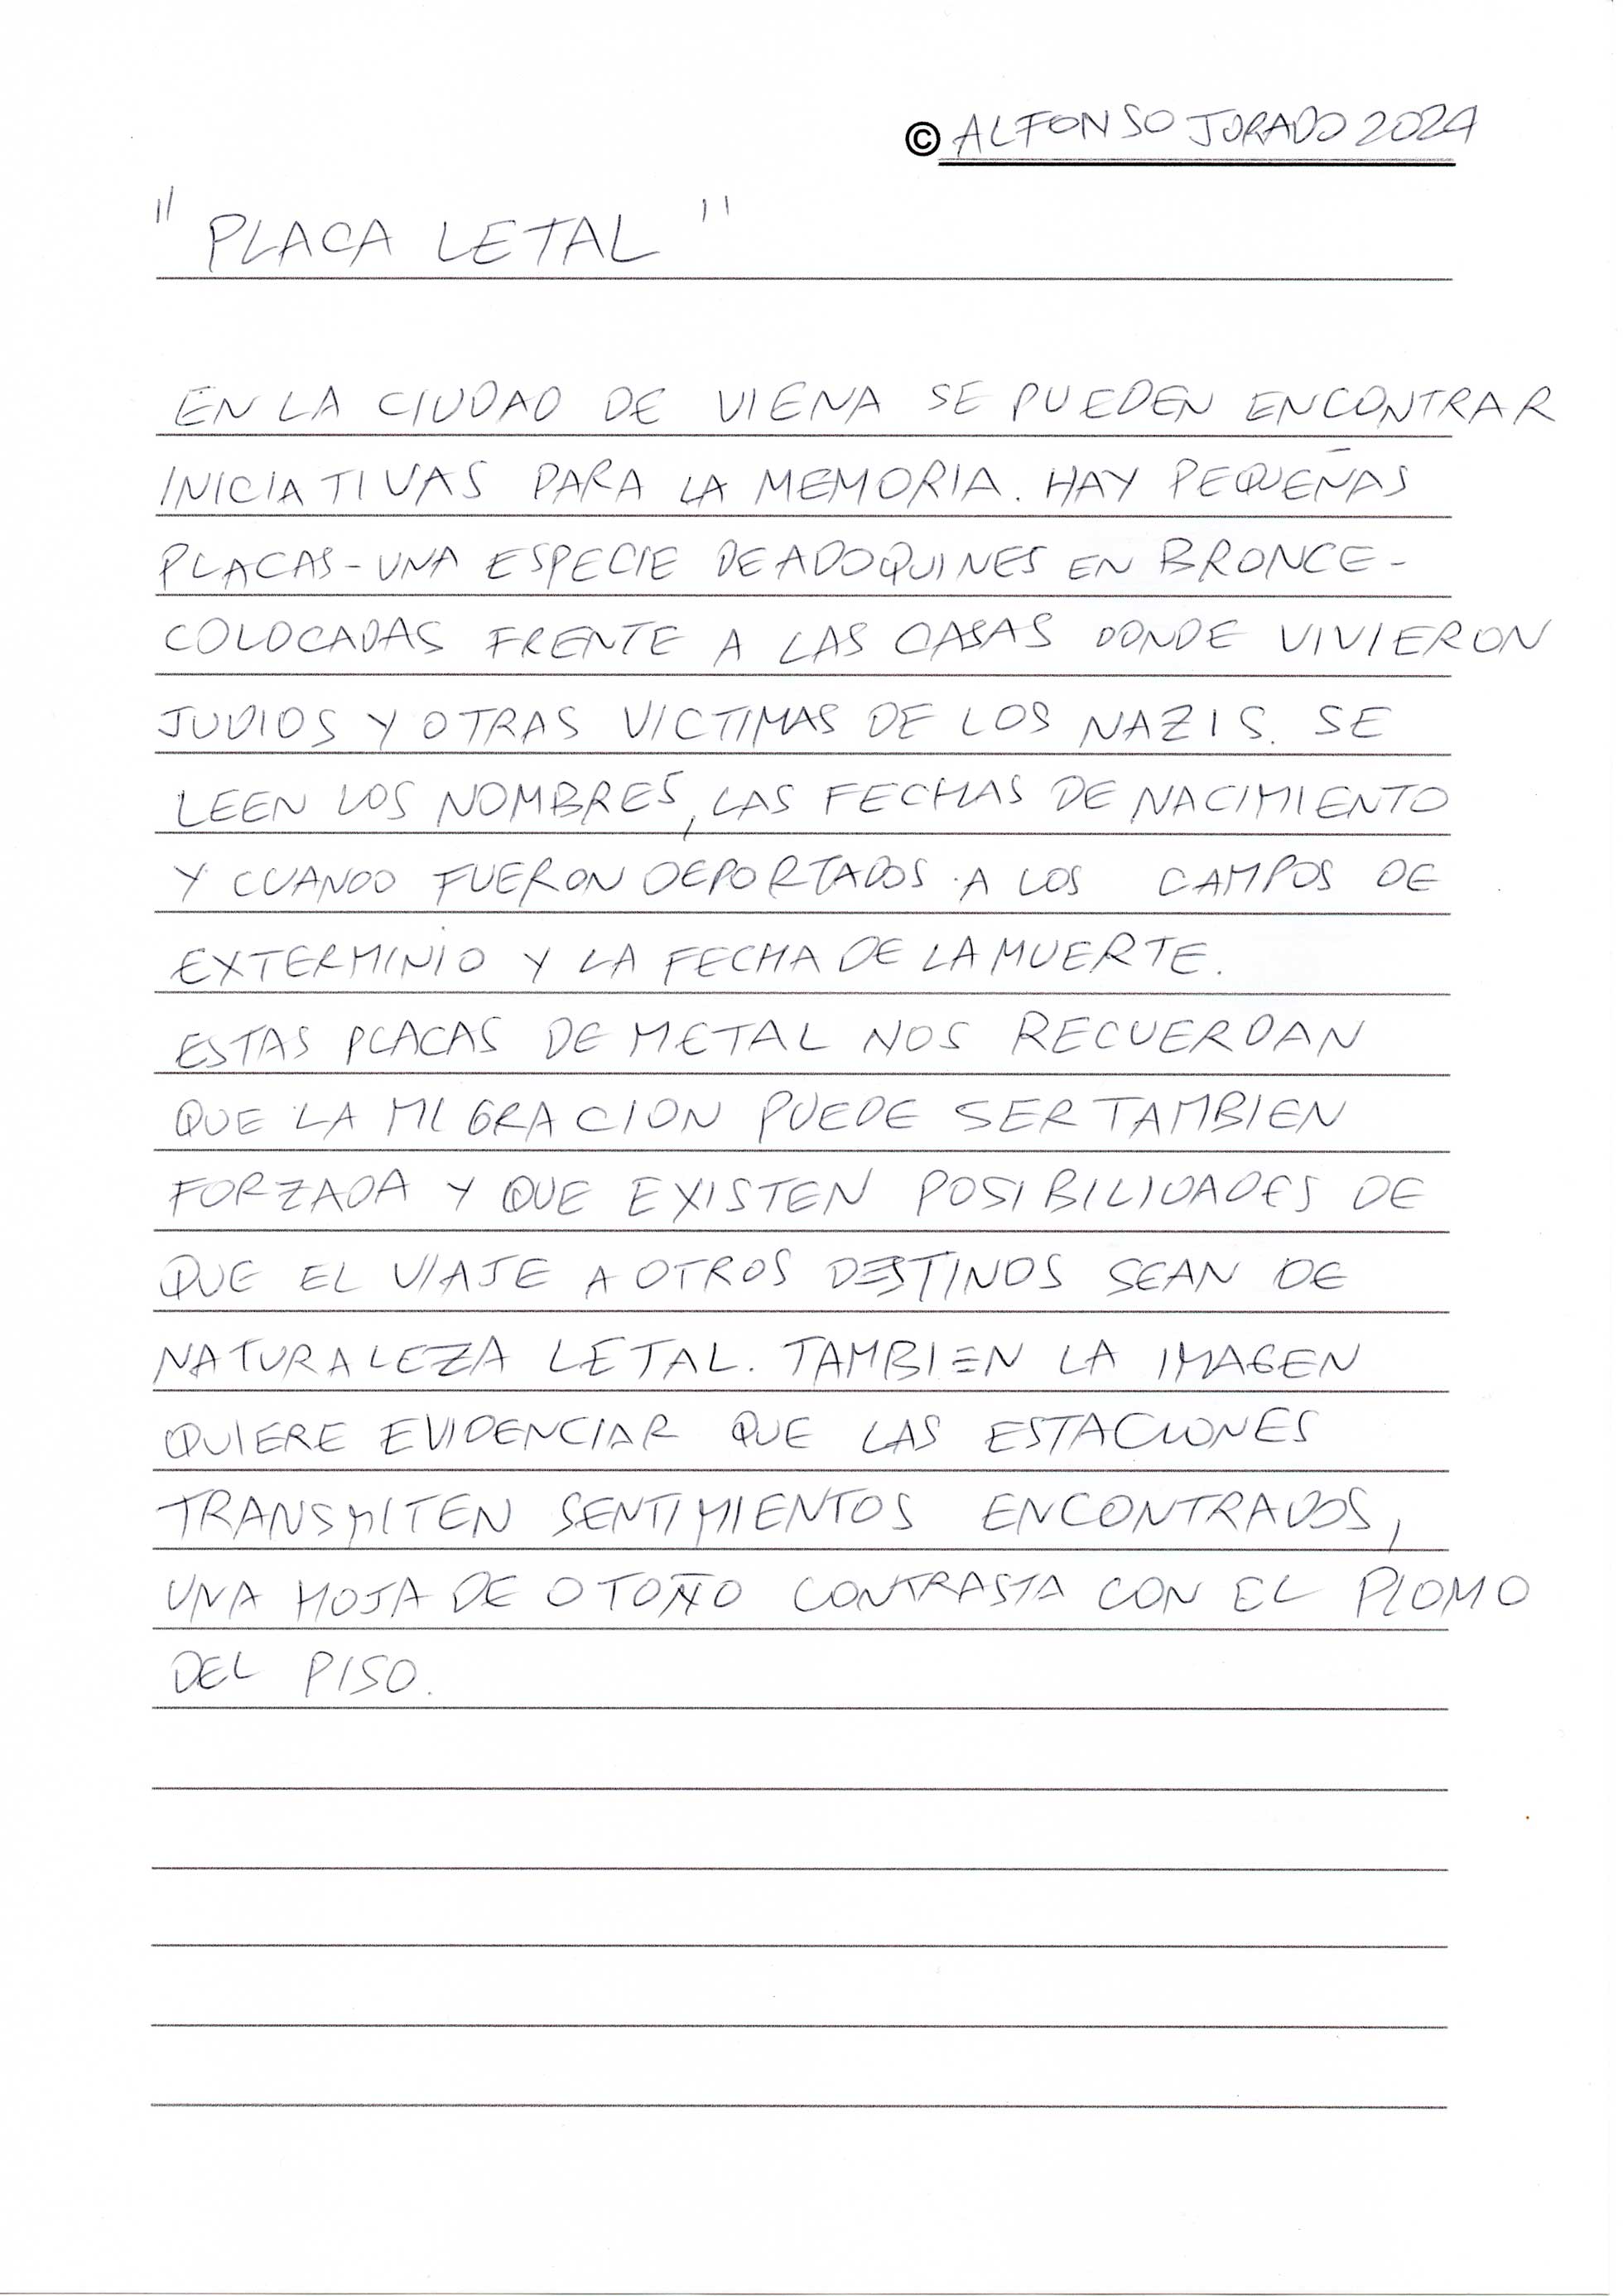 © ALFONSO JURADO 2024
" PLACA LETAL "
EN LA CIUDAD DE VIENA SE PUEDEN ENCONTRAR
INICIATIVAS PARA LA MEMORIA. HAY PEQUEÑAS
PLACAS-UNA ESPECIE DE ADOQUINES EN BRONCE-
COLOCADAS FRENTE A LAS CASAS DONDE VIVIERON
JUDIOS Y OTRAS VICTIMAS DE LOS NAZIS. SE
LEEN LOS NOMBRES, LAS FECHAS DE NACIMIENTO
Y CUANDO FUERON DEPORTADOS A LOS CAMPOS DE
EXTERMINIO Y LA FECHA DE LA MUERTE.
ESTAS PLACAS DE METAL NOS RECUERDAN
QUE LA MIGRACION PUEDE SER TAMBIEN
FORZADA Y QUE EXISTEN POSIBILIDADES DE
QUE EL VIAJE A OTROS DESTINOS SEAN DE
NATURALEZA LETAL. TAMBIEN LA IMAGEN
QUIERE EVIDENCIAR QUE LAS ESTACIONES
TRANSMITEN SENTIMIENTOS ENCONTRADOS,
UNA HOJA DE OTOÑO CONTRASTA CON EL PLOMO
DEL PISO.